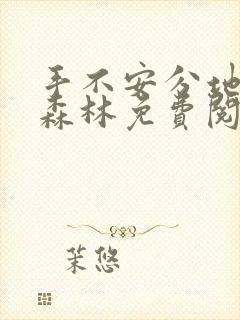 手不安分地
森林免费阅
茉悠